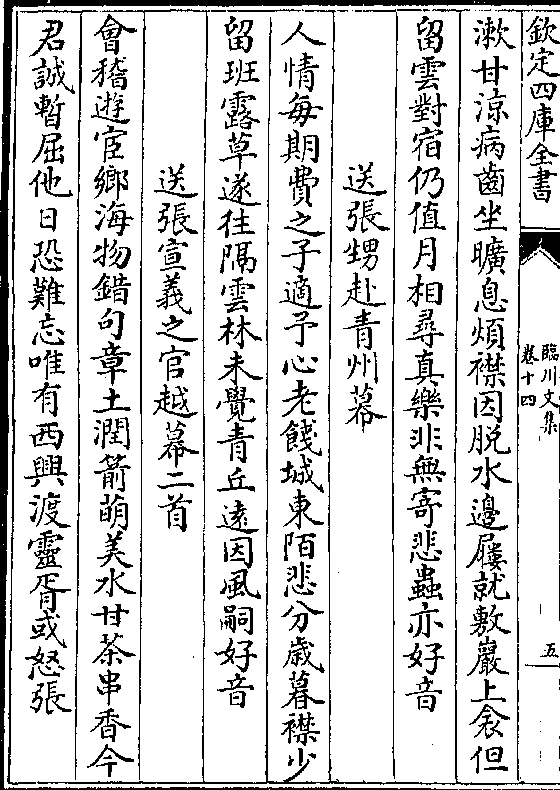 欽定四庫全書
臨川文集
卷十四
五
漱甘涼病齒坐曠息煩襟因脱水邊屨就敷巖上衾但
留雲對宿仍值月相尋真樂非無寄悲蟲亦好音
送張甥赴青州幕
人情每期費之子適予心老餞城東陌悲分歲暮襟少
留班露草遂往隔雲林未覺青丘遠因風嗣好音
送張宣義之官越幕二首
會稽遊宦鄉海物錯句章土潤箭萌美水甘茶串香今
君誠暫屈他日恐難忘唯有西興渡靈胥或怒張